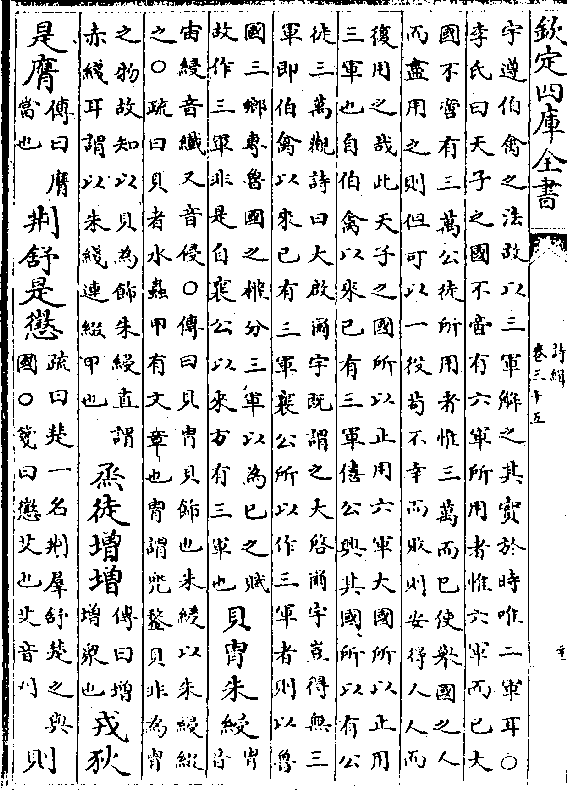 欽定四庫全書
詩緝
卷三十五
宇遵伯禽之法故以三軍解之其實於時唯二軍耳○
李氏曰天子之國不啻有六軍所用者惟六軍而已大
國不啻有三萬公徒所用者惟三萬而已使衆國之人
而盡用之則但可以一役苟不幸而敗則安得人人而
復用之哉此天子之國所以止用六軍大國所以止用
三軍也自伯禽以來已有三軍僖公興其國所以有公
徒三萬觀詩曰大啟爾宇既謂之大啓爾宇豈得無三
軍即伯禽以來已有三軍襄公所以作三軍者則以魯
國三鄉專魯國之權分三軍以為已之賦
故作三軍非是自襄公以來方有三軍也
貝胄朱綅
胄音
宙綅音纖又音侵○傳曰貝胄貝飾也朱綅以朱綅綴
之○疏曰貝者水蟲甲有文章也胄謂兜鍪貝非為胄
之物故知以貝為飾朱綅直謂
赤綫耳謂以朱綫連綴甲也
烝徒增增
傳曰增
增衆也
戎狄
是膺
傳曰膺
當也
荆舒是懲
疏曰楚一名荆羣舒楚之與
國○箋曰懲艾也艾音刈
則